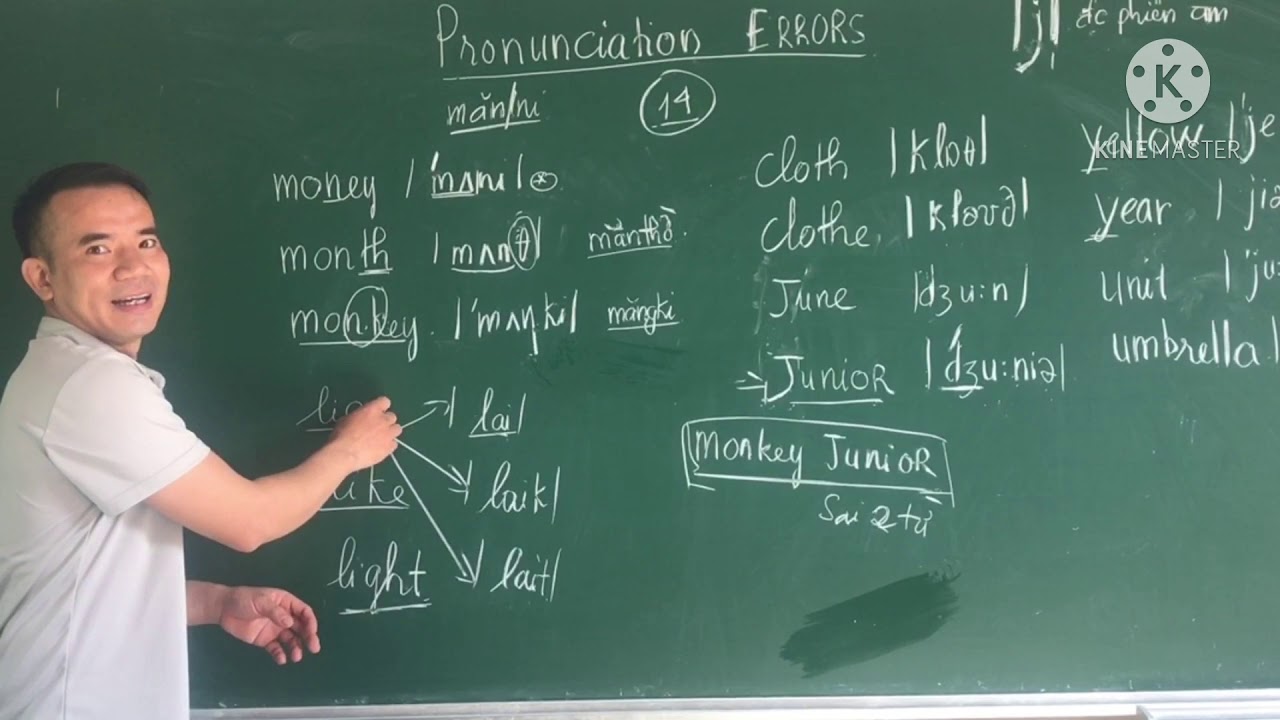 Pronunciation ERRORS
măn/ni
14
money /ˈmʌni/
month /mʌnθ/ mănthờ.
monkey. /ˈmʌŋki/ măngki
/lai/
like /laik/
light /lait/
cloth /klɒθ/
clothe /kləʊð/
June /dʒu:n/
Junior /ˈdʒu:niə/
Monkey Junior
Sai 2 từ
/j/ đc phiên âm
yellow /ˈje
year /jiə
unit /ˈju:
umbrella /
K
KINEMASTER